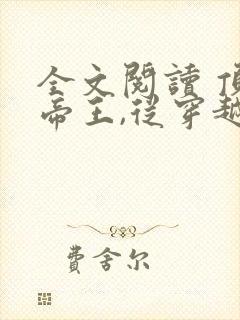 全文閱讀
帝王,從穿越
費舍尔